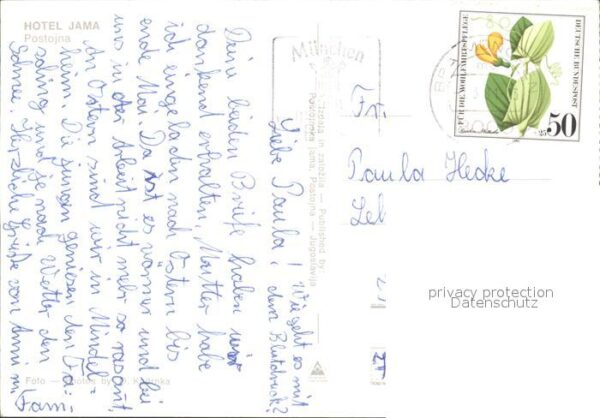 HOTEL JAMA
Postojna
München
Liebe Paula! Wie geht es mit
dem Blutdruck?
Deine beiden Briefe haben wir
dankend erhalten, Mutter habe
ich eingeladen nach Ostern bis
ende Mai. Da ist es wärmer und bei
uns in der Arbeit nicht mehr so rasant.
An Ostern sind wir in Mindel-
heim. Die Jungen geniesen den Fa-
sching und je nach Wetter den
Schnee. Herzliche Grüße von Anni m.
Fam.
Izdala in založila — Published by
Postojnska jama, Postojna — Jugoslavija
Foto — Photos by
Fr.
Paula Hecke
DEUTSCHE BUNDESPOST
FÜR DIE WOHLFAHRTSPFLEGE
50
+25
privacy protection
Datenschutz